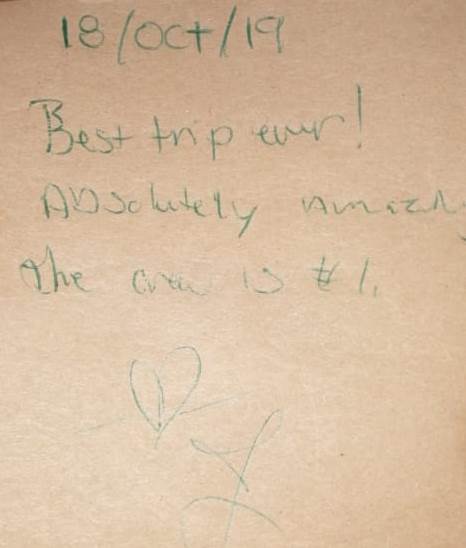 18/Oct/19
Best trip ever!
Absolutely
The crew is #1.